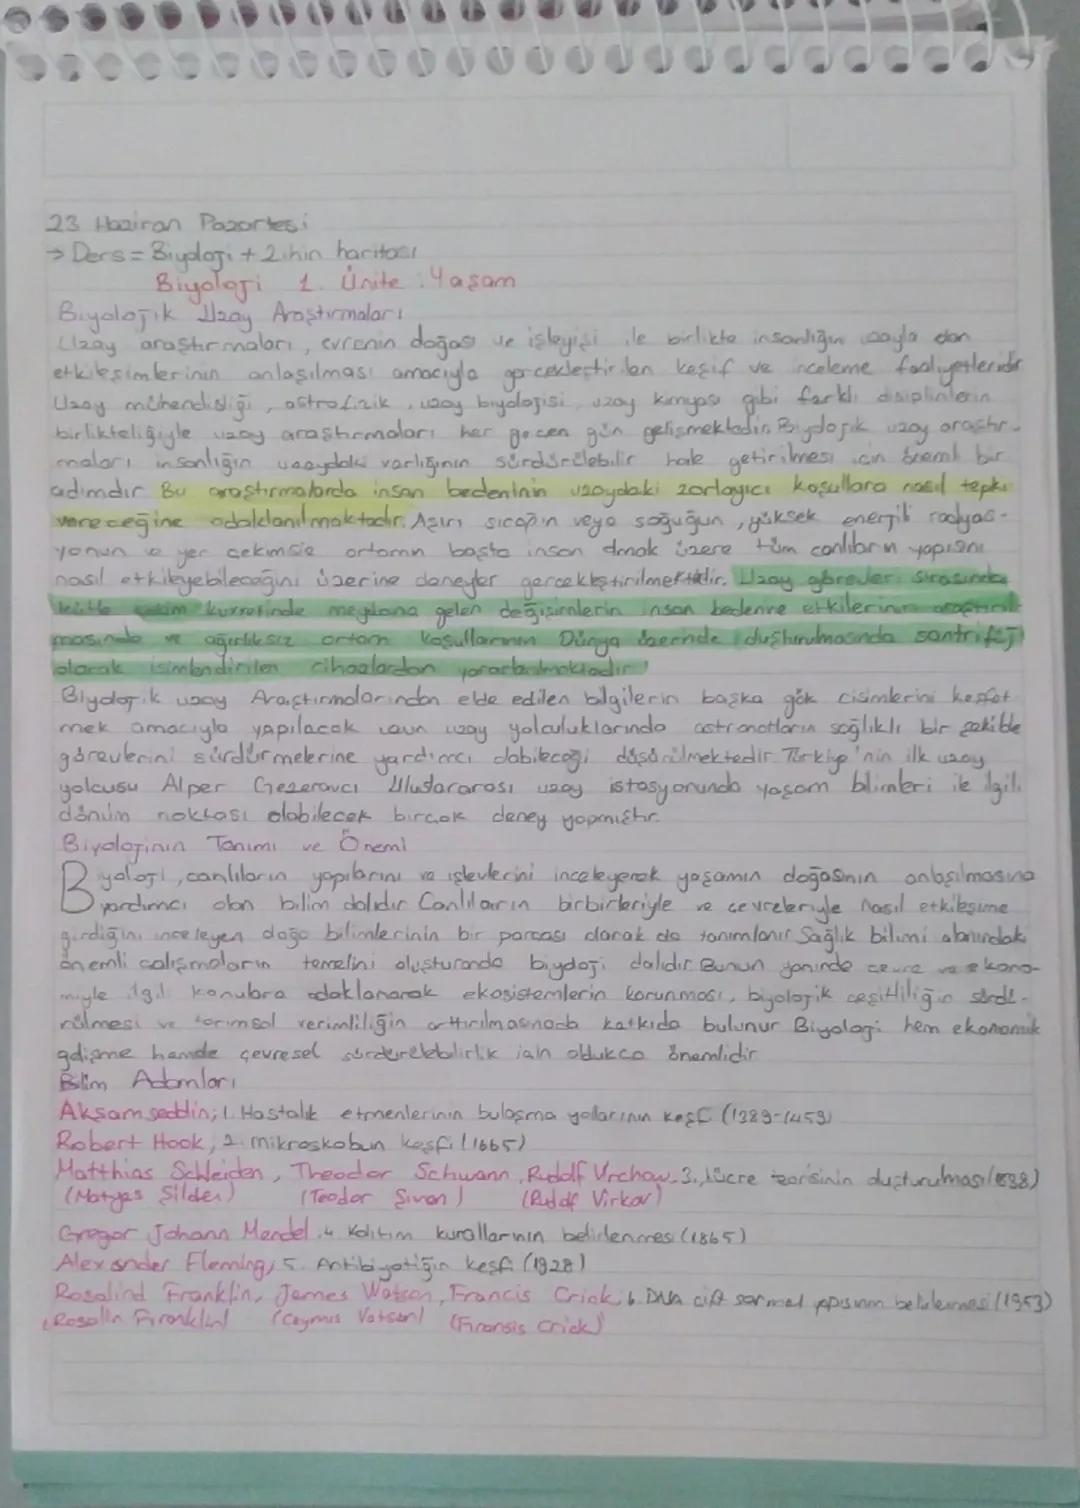 23 Haziran Pazartesi
→ Ders = Biyoloji + Zihin haritası
Biyoloji 1. Ünite : Yaşam
Biyolojik Uzay Araştırmaları
Uzay araştırmaları, evrenin doğası ve işleyişi ile birlikte insanlığın uzayla olan
etkileşimlerinin anlaşılması amacıyla gerçekleştirilen keşif ve inceleme faaliyetleridir
Uzay mühendisliği, astrofizik, uzay biyolojisi, uzay kimyası gibi farklı disiplinlerin
birlikteliğiyle uzay araştırmaları her geçen gün gelişmektedir. Biyolojik uzay araştır-
maları insanlığın uzaydaki varlığının sürdürülebilir hale getirilmesi için önemli bir
adımdır Bu araştırmalarda insan bedeninin uzaydaki zorlayıcı koşullara nasıl tepki
vereceğine odaklanılmaktadır. Aşırı sıcağın veya soğuğun, yüksek enerjili radyas-
yonun ve yer çekimsiz ortamın başta insan olmak üzere tüm canlıların yapısını
nasıl etkileyebileceğini üzerine deneyler gerçekleştirilmektedir. Uzay görevleri sırasında
kütle çekim kuvvetinde meydana gelen değişimlerin insan bedenine etkilerinin araştırıl-
masında ve ağırlıksız ortam koşullarının Dünya üzerinde oluşturulmasında santrifüj
olarak isimlendirilen cihazlardan yararlanılmaktadır!
Biyolojik uzay Araştırmalarından elde edilen bilgilerin başka gök cisimlerini keşfet
mek amacıyla yapılacak uzun uzay yolculuklarında astronotların sağlıklı bir şekilde
görevlerini sürdürmelerine yardımcı olabileceği düşünülmektedir Türkiye'nin ilk uzay
yolcusu Alper Gezeravcı Uluslararası uzay istasyonunda yaşam bilimleri ile ilgili
dönüm noktası olabilecek birçok deney yapmıştır.
Biyolojinin Tanımı ve Önemi
Biyoloji, canlıların yapılarını ve işlevlerini inceleyerek yaşamın doğasının anlaşılmasına
yardımcı olan bilim dalıdır Canlıların birbirleriyle ve çevreleriyle nasıl etkileşime
girdiğini inceleyen doğa bilimlerinin bir parçası olarak da tanımlanır Sağlık bilimi alanındaki
önemli çalışmaların temelini oluşturanda biyoloji dalıdır Bunun yanında çevre ve ekono-
miyle ilgili konulara odaklanarak ekosistemlerin korunması, biyolojik çeşitliliğin sürdü-
rülmesi ve tarımsal verimliliğin arttırılmasınada katkıda bulunur Biyoloji hem ekonomik
gelişme hemde çevresel sürdürelebilirlik için oldukca önemlidir
Bilim Adamları
Akşamseddin; 1. Hastalık etmenlerinin bulaşma yollarının keşfi (1389-1459)
Robert Hook, 2. mikroskobun keşfi (1665)
Matthias Schleiden, Theodor Schwann, Rudolf Virchow 3. hücre teorisinin oluşturulması (1838)
(Matyas Şilden) (Teodor Şıvan) (Rudolf Virkov)
Gregor Johann Mendel ; 4. Kalıtım kurallarının belirlenmesi (1865)
Alexander Fleming, 5. Antibiyotiğin keşfi (1928)
Rosalind Franklin, James Watson, Francis Crick ; 6. DNA çift sarmal yapısının belirlenmesi (1953)
(Rosalin Firanklin) (Ceymıs Vatson) (Firansis Crick)